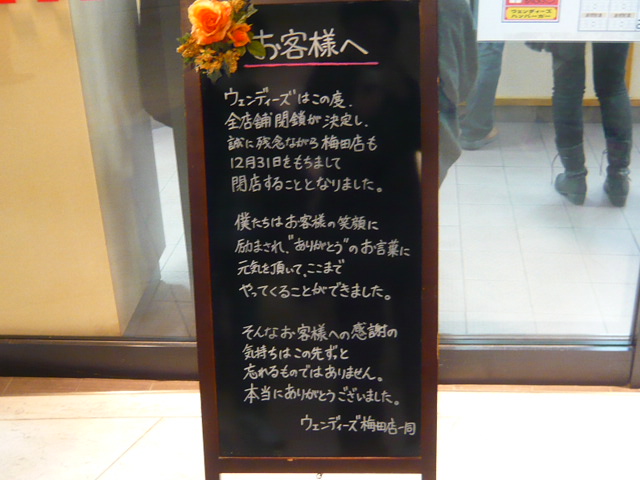 お客様へ
ウェンディーズはこの度、
全店舗閉鎖が決定し、
誠に残念ながら梅田店も
12月31日をもちまして
閉店することとなりました。
僕たちはお客様の笑顔に
励まされ、"ありがとう"のお言葉に
元気を頂いて、ここまで
やってくることができました。
そんなお客様への感謝の
気持ちはこの先ずっと
忘れるものではありません。
本当にありがとうございました。
ウェンディーズ梅田店一同
ウェンディーズ
ハンバーガー